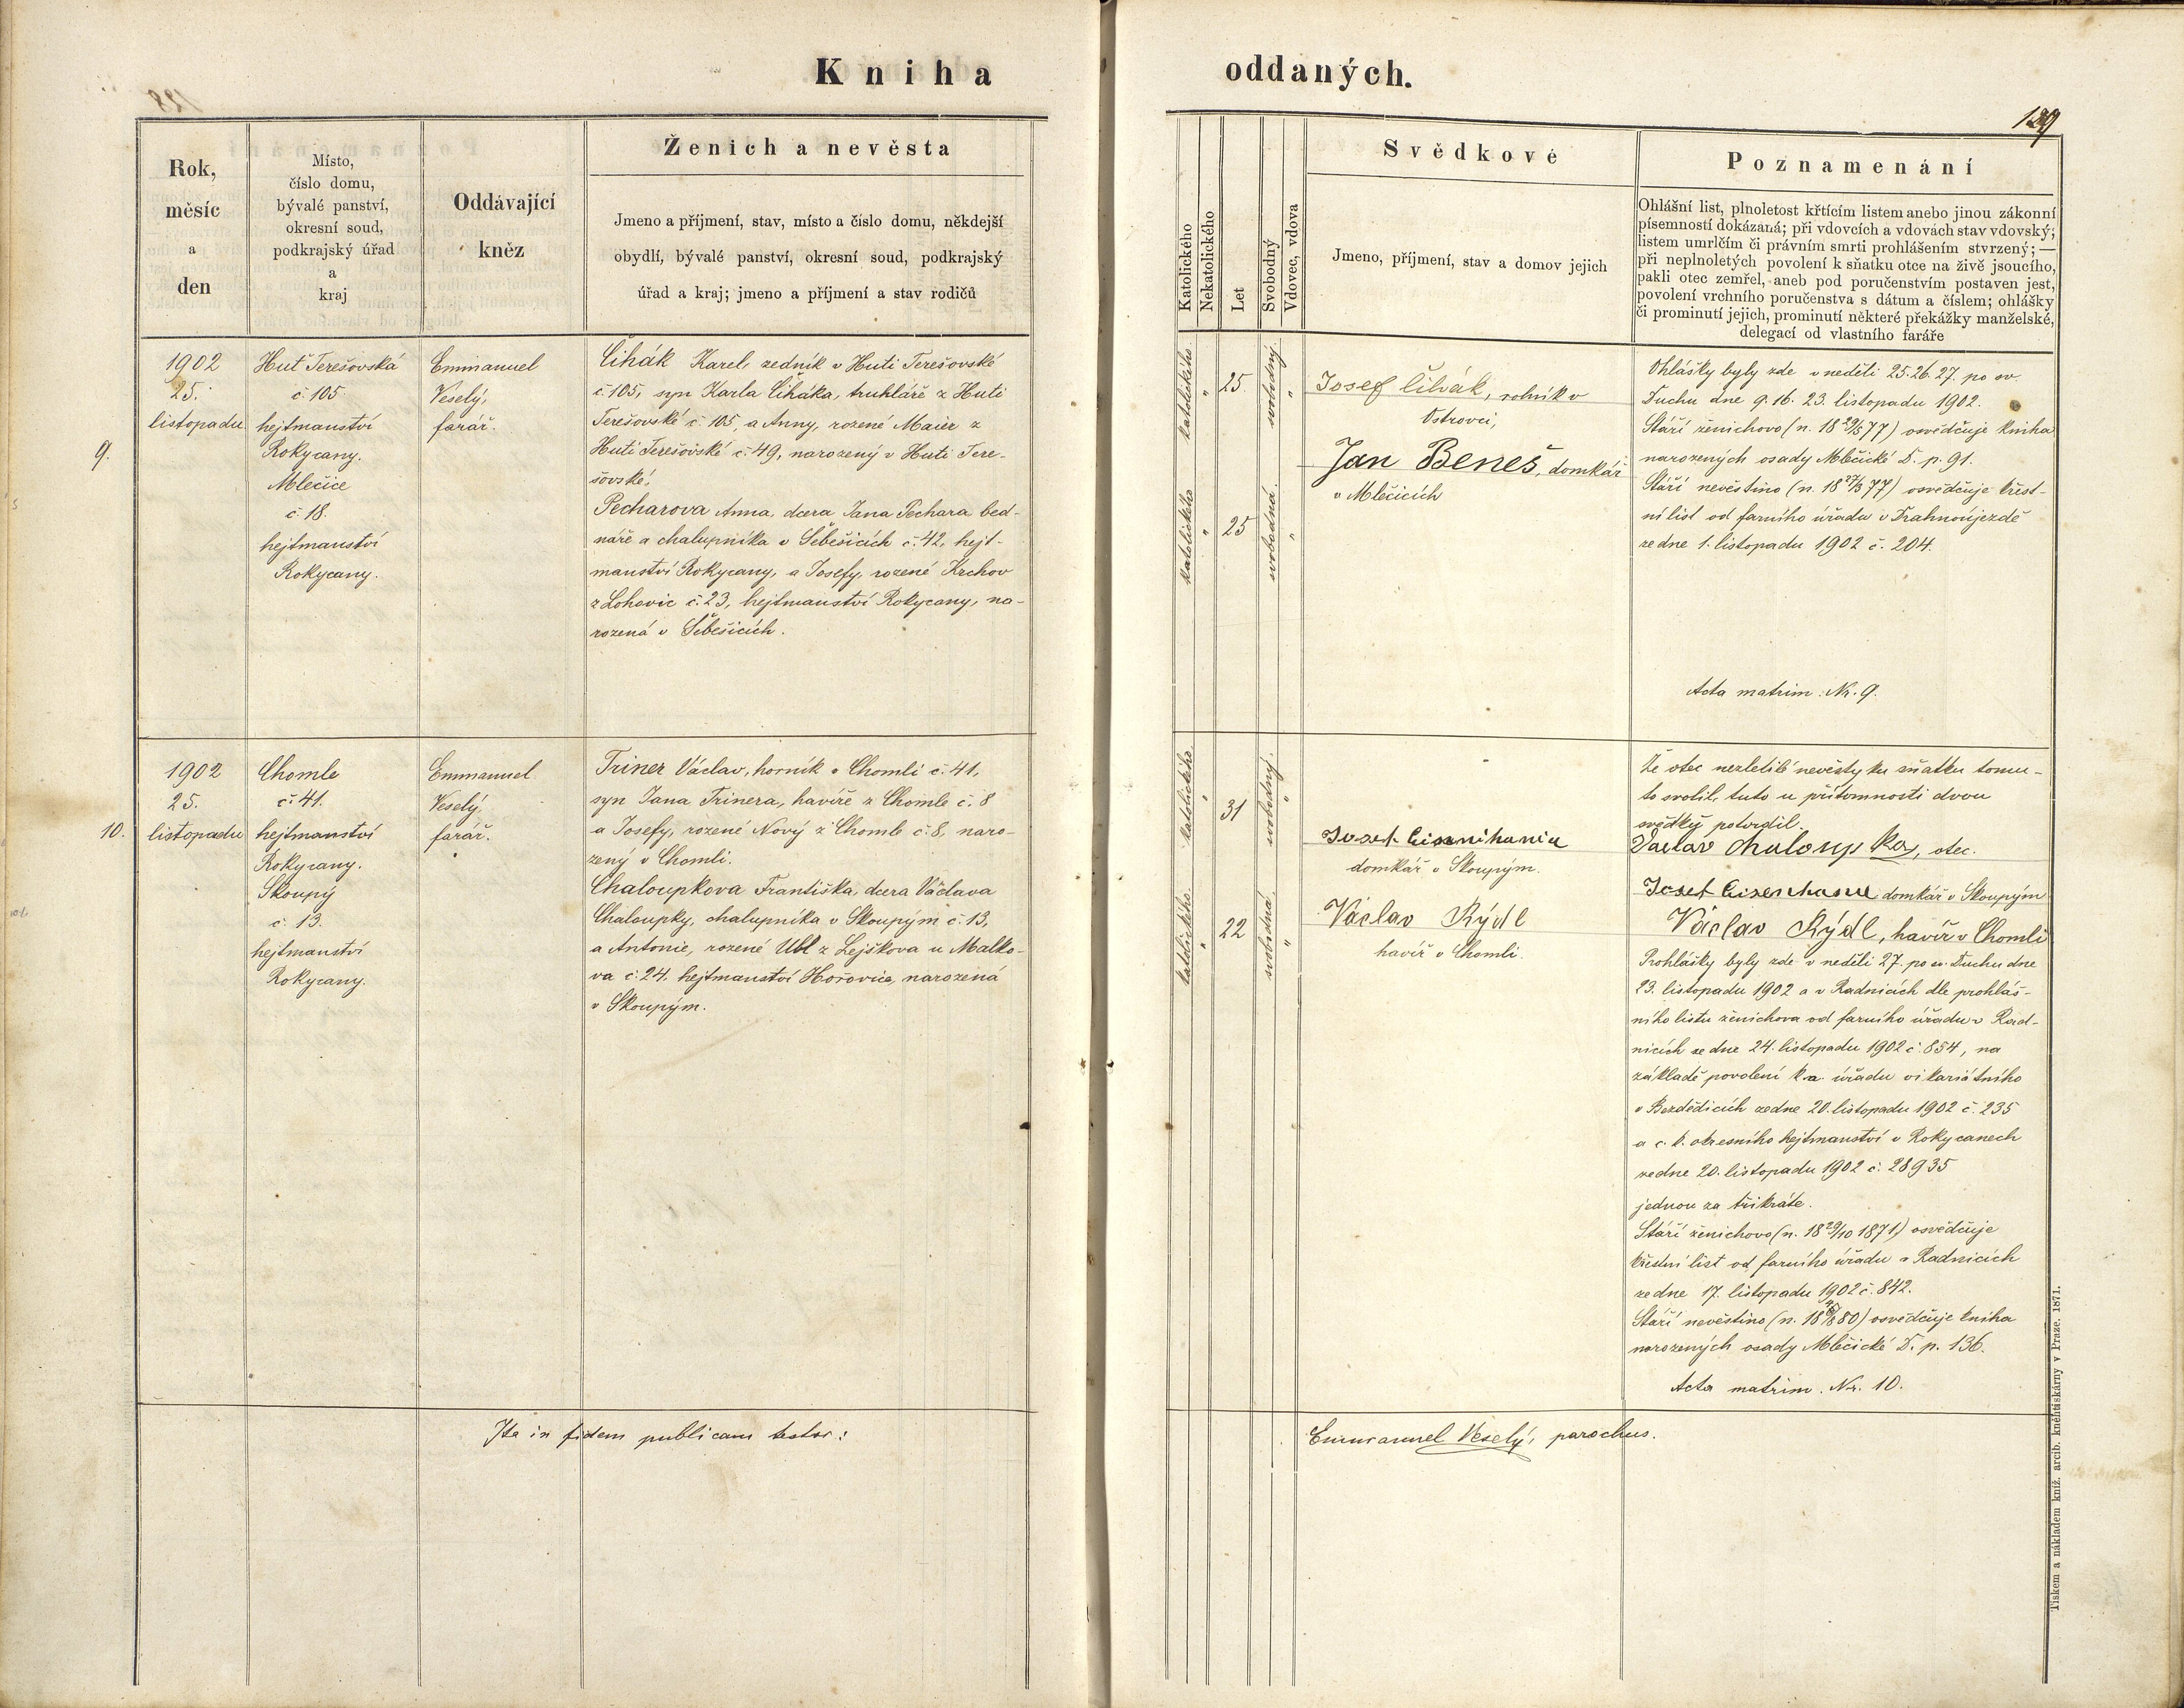 Kniha
oddaných.
139
Rok,
měsíc
a
den
Místo,
číslo domu,
bývalé panství,
okresní soud,
podkrajský úřad
a
kraj
Oddávající
kněz
Ženich a nevěsta
Jmeno a příjmení, stav, místo a číslo domu, někdejší
obydlí, bývalé panství, okresní soud, podkrajský
úřad a kraj; jmeno a příjmení a stav rodičů
Katolického
Nekatolického
Let
Svobodný
Vdovec, vdova
Svědkové
Jmeno, příjmení, stav a domov jejich
Poznamenání
Ohlášní list, plnoletost křtícím listem anebo jinou zákonní
písemností dokázaná; při vdovcích a vdovách stav vdovský;
listem umrlčím či právním smrti prohlášením stvrzený; —
při neplnoletých povolení k sňatku otce na živě jsoucího,
pakli otec zemřel, aneb pod poručenstvím postaven jest,
povolení vrchního poručenstva s dátum a číslem; ohlášky
či prominutí jejich, prominutí některé překážky manželské,
delegací od vlastního faráře
9.
1902
25.
listopadu
Huť Terešovská
č. 105
hejtmanství
Rokycany.
Mlečice
č. 18.
hejtmanství
Rokycany.
Emmanuel
Veselý,
farář.
Čihák Karel, zedník v Huti Terešovské
č. 105, syn Karla Čiháka, truhláře z Huti
Terešovské č. 105, a Anny, rozené Maier z
Huti Terešovské č. 49, narozený v Huti Tere-
šovské.
Pecharova Anna, dcera Jana Pechara bed-
náře a chalupníka v Šebešicích č. 42, hejt-
manství Rokycany, a Josefy, rozené Krchov
z Lohovic č. 23, hejtmanství Rokycany, na-
rozená v Šebešicích.
katolického
"
25
svobodný
"
katolického
"
25
svobodná
"
Josef Čihák, rolník v
Ostrovci,
Jan Beneš, domkář
v Mlečicích
Ohlášky byly zde v neděli 25. 26. 27. po sv.
Duchu dne 9. 16. 23. listopadu 1902.
Stáří ženichovo (n. 18 29/5 77) osvědčuje kniha
narozených osady Mlečické D. p. 91.
Stáří nevěstino (n. 18 27/3 77) osvědčuje křest-
ní list od farního úřadu v Drahnoújezdě
ze dne 1. listopadu 1902 č. 204.
Acta matrim. Nr. 9.
10.
1902
25.
listopadu
Chomle
č. 41.
hejtmanství
Rokycany.
Skoupý
č. 13.
hejtmanství
Rokycany.
Emmanuel
Veselý,
farář.
Triner Václav, horník v Chomli č. 41,
syn Jana Trinera, havíře z Chomle č. 8
a Josefy, rozené Nový z Chomle č. 8, naro-
zený v Chomli.
Chaloupkova Františka, dcera Václava
Chaloupky, chalupníka v Skoupým č. 13,
a Antonie, rozené Ubl z Lejškova u Malko-
va č. 24, hejtmanství Hořovice, narozená
v Skoupým.
katolického
"
31
svobodný
"
katolického
"
22
svobodná
"
Josef
domkář v Skoupým.
Václav Rýdl
havíř v Chomli.
Že otec nezletilé nevěsty ku sňatku tomu-
to svolil, tuto u přítomnosti dvou
svědků potvrdil.
Václav Chaloupka, otec.
Josef domkář v Skoupým
Václav Rýdl, havíř v Chomli
Prohlášky byly zde v neděli 27. po sv. Duchu dne
23. listopadu 1902 a v Radnicích dle prohláš-
ního listu ženichova od farního úřadu v Rad-
nicích ze dne 24. listopadu 1902 č. 854, na
základě povolení k. a. úřadu vikariátního
v Bezdědicích ze dne 20. listopadu 1902 č. 235
a c. k. okresního hejtmanství v Rokycanech
ze dne 20. listopadu 1902 č. 28935
jednou za třikráte.
Stáří ženichovo (n. 18 29/10 1871) osvědčuje
křestní list od farního úřadu v Radnicích
ze dne 17. listopadu 1902 č. 842.
Stáří nevěstino (n. 18 80) osvědčuje kniha
narozených osady Mlečické D. p. 136.
Acta matrim. Nr. 10.
Ita in fidem publicam testor:
Emmanuel Veselý, parochus.
Tiskem a nákladem kníž. arcib. kněhtiskárny v Praze. 1871.